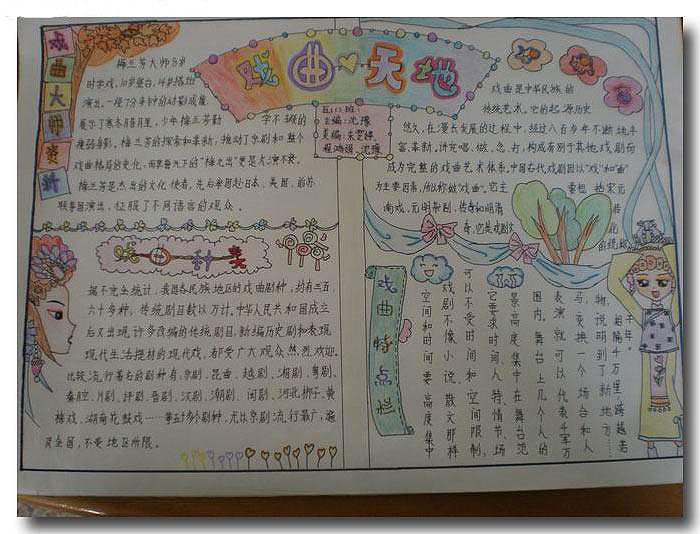 戏曲天地
戏曲大师资料
梅兰芳大师8岁
时学戏,10岁登台,
演出,一段7分多钟的
展示了寒冬腊月里,少年梅兰芳勤学不辍的
瘦弱身影。梅兰芳的探索和革新,推动了京剧和整个
戏曲格局的变化,由京鲁光下的"梅先出"更是亢演不衰。
梅兰芳是杰出的文化使者,先后率团赴日本、美国、前苏
联等国演出,征服了不同语言的观众。
五(1)班:
主编:沈豫
美编:朱雯婷
程鸿福、沈豫
戏曲是中华民族的
传统艺术。它的起源历史
悠久,在漫长发展的过程中,经过八百多年不断地丰
富、革新,讲究唱、做、念、打,构成有别于其他戏剧而
成为完整的戏曲艺术体系,中国古代戏剧因以"戏"和"曲"
为主要因素,所以称做"戏曲"。它主要包括宋元
南戏、元明杂剧、传奇和明清
的统称
戏曲种类
据不完全统计,我国各民族地区的戏曲剧种,约有三百
六十多种,传统剧目数以万计。中华人民共和国成立
后又出现许多改编的传统剧目,新编历史剧和表现
现代生活题材的现代戏,都受广大观众热烈欢迎。
比较流行著名的剧种有:京剧、昆曲、越剧、湘剧、粤剧、
秦腔、川剧、评剧、晋剧、汉剧、潮剧、闽剧、河北梆子、黄
梅戏、湖南花鼓戏······等五十多个剧种,尤以京剧流行最广,遍
及全国,不受地区所限。
戏曲特点栏
千年。
相隔千万里,跨越若
物,说明到了新地方……
马,变换一个场合和人
表演就可以代表千军万
围内,舞台上几个人的
景高度集中在舞台范
它要求时间、人物、情节、场
可以不受时间和空间限制,
戏剧不像小说、散文那样
空间和时间要高度集中